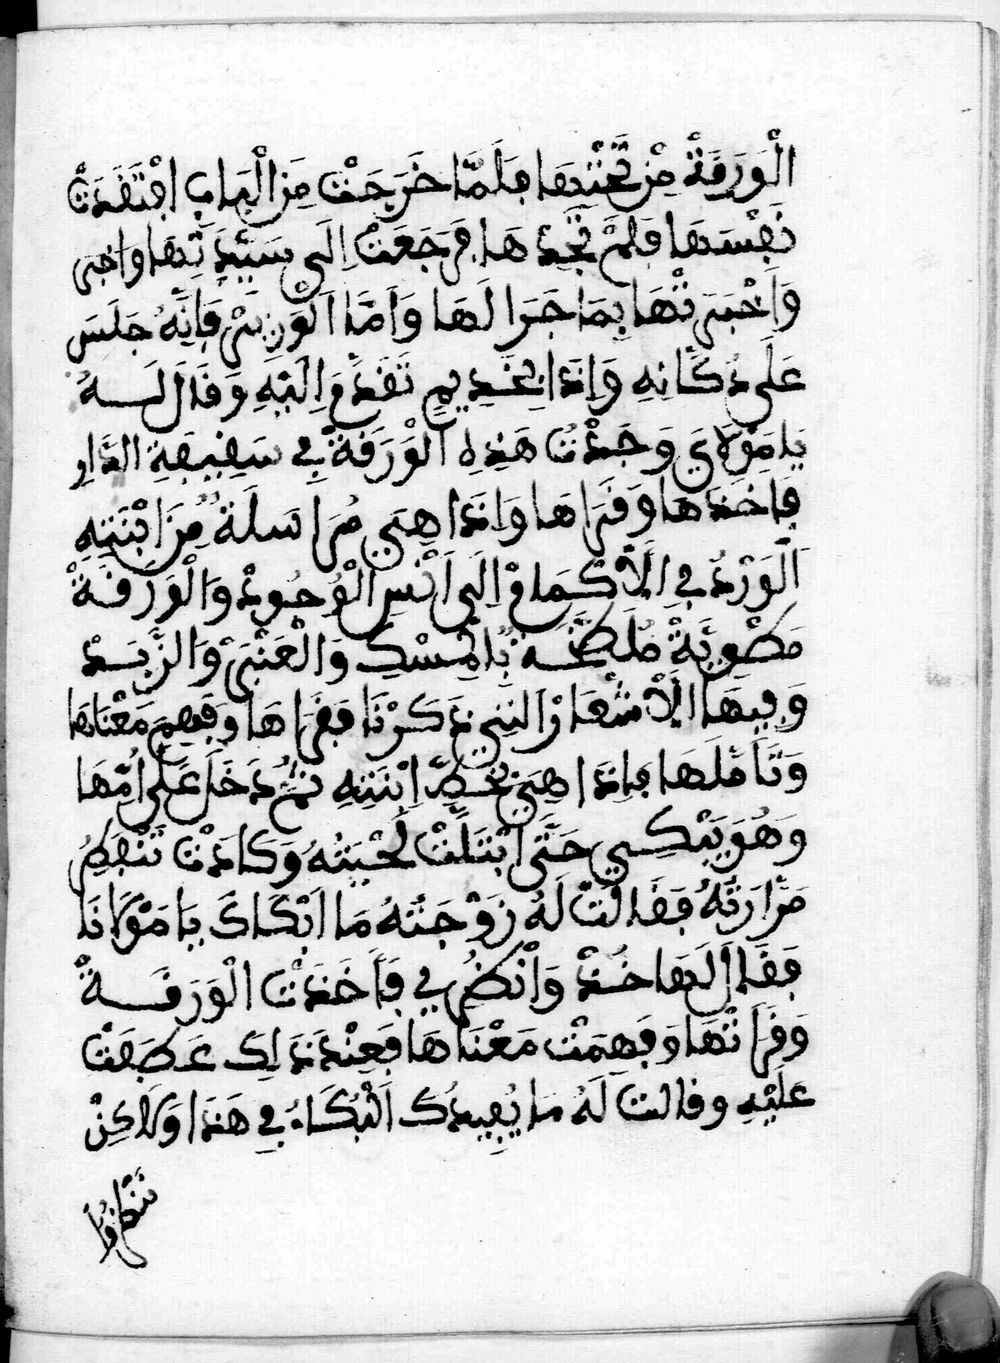 الْوَرَقَةْ مِنْ تَحْتِهَا فَلَمَّا خَرَجَتْ مِنَ الْبَابِ افْتَقَدَتْ
نَفْسَهَا فَلَمْ تَجِدْهَا فَرَجَعَتْ اِلَى سَيِّدَتِهَا واخبر
وَأَخْبَرَتْهَا بِمَا جَرَا لَهَا وَأَمَّا الْوَزِيرْ فَإِنَّهُ جَلَسَ
عَلَى دُكَّانِهِ وَإِذَا بِخَدِيمٍ تَقَدَّمَ اِلَيْهِ وَقَالَ لَـــهُ
يَا مَوْلَايَ وَجَدْتُ هَذِهِ الْوَرَقَةْ فِي سَفِيفَةِ الدَّارِ
فَأَخَذَهَا وَقَرَاهَا وَإِذَا هِيَ مُرَاسَلَةٌ مِنَ ابْنَتِهِ
الْوَرْدُ فِي الْأَكْمَامْ اِلَى اَنْسِ الْوُجُودْ وَالْوَرَقَةْ
مَطْوِيَّةْ مُلَطَّخَـــه بِالْمِسْكِ وَالْعَنْبَرْ وَالزَّبَـــدْ
وَفِيهَا الْأَشْعَارْ الَتِي ذَكَرْنَا فَقَرَاهَا وَفَهِمَ مَعْنَاهَا
وَتَأَمَّلَهَا فَإِذَا هِيَ بِخَطِّ ابْنَتِهِ ثُمَّ دَخَلَ عَلَى اُمِّهَا
وَهُوَ يَبْكِي حَتَّى ابْتَلَّتْ لَحْيَتُهُ وَكَادَتْ تَنْفَطِرُ
مَرَّارَتُهُ فَقَالَتْ لَهُ زَوْجَتُهُ مَا اَبْكَاكَ يَا مَوْلَانَا
فَقَالَ لَهَا خُذْ وَانْظُرِي فَأَخَذَتْ الْوَرَقَـــةْ
وَقَرَاتْهَا وَفَهِمَتْ مَعْنَاهَا فَعِنْدَ ذَلِكَ عَطَفَتْ
عَلَيْهِ وقالت لَهُ مَا يُفِيدُكَ الْبُكَاءُ فِي هَذَا وَلَاكِنْ